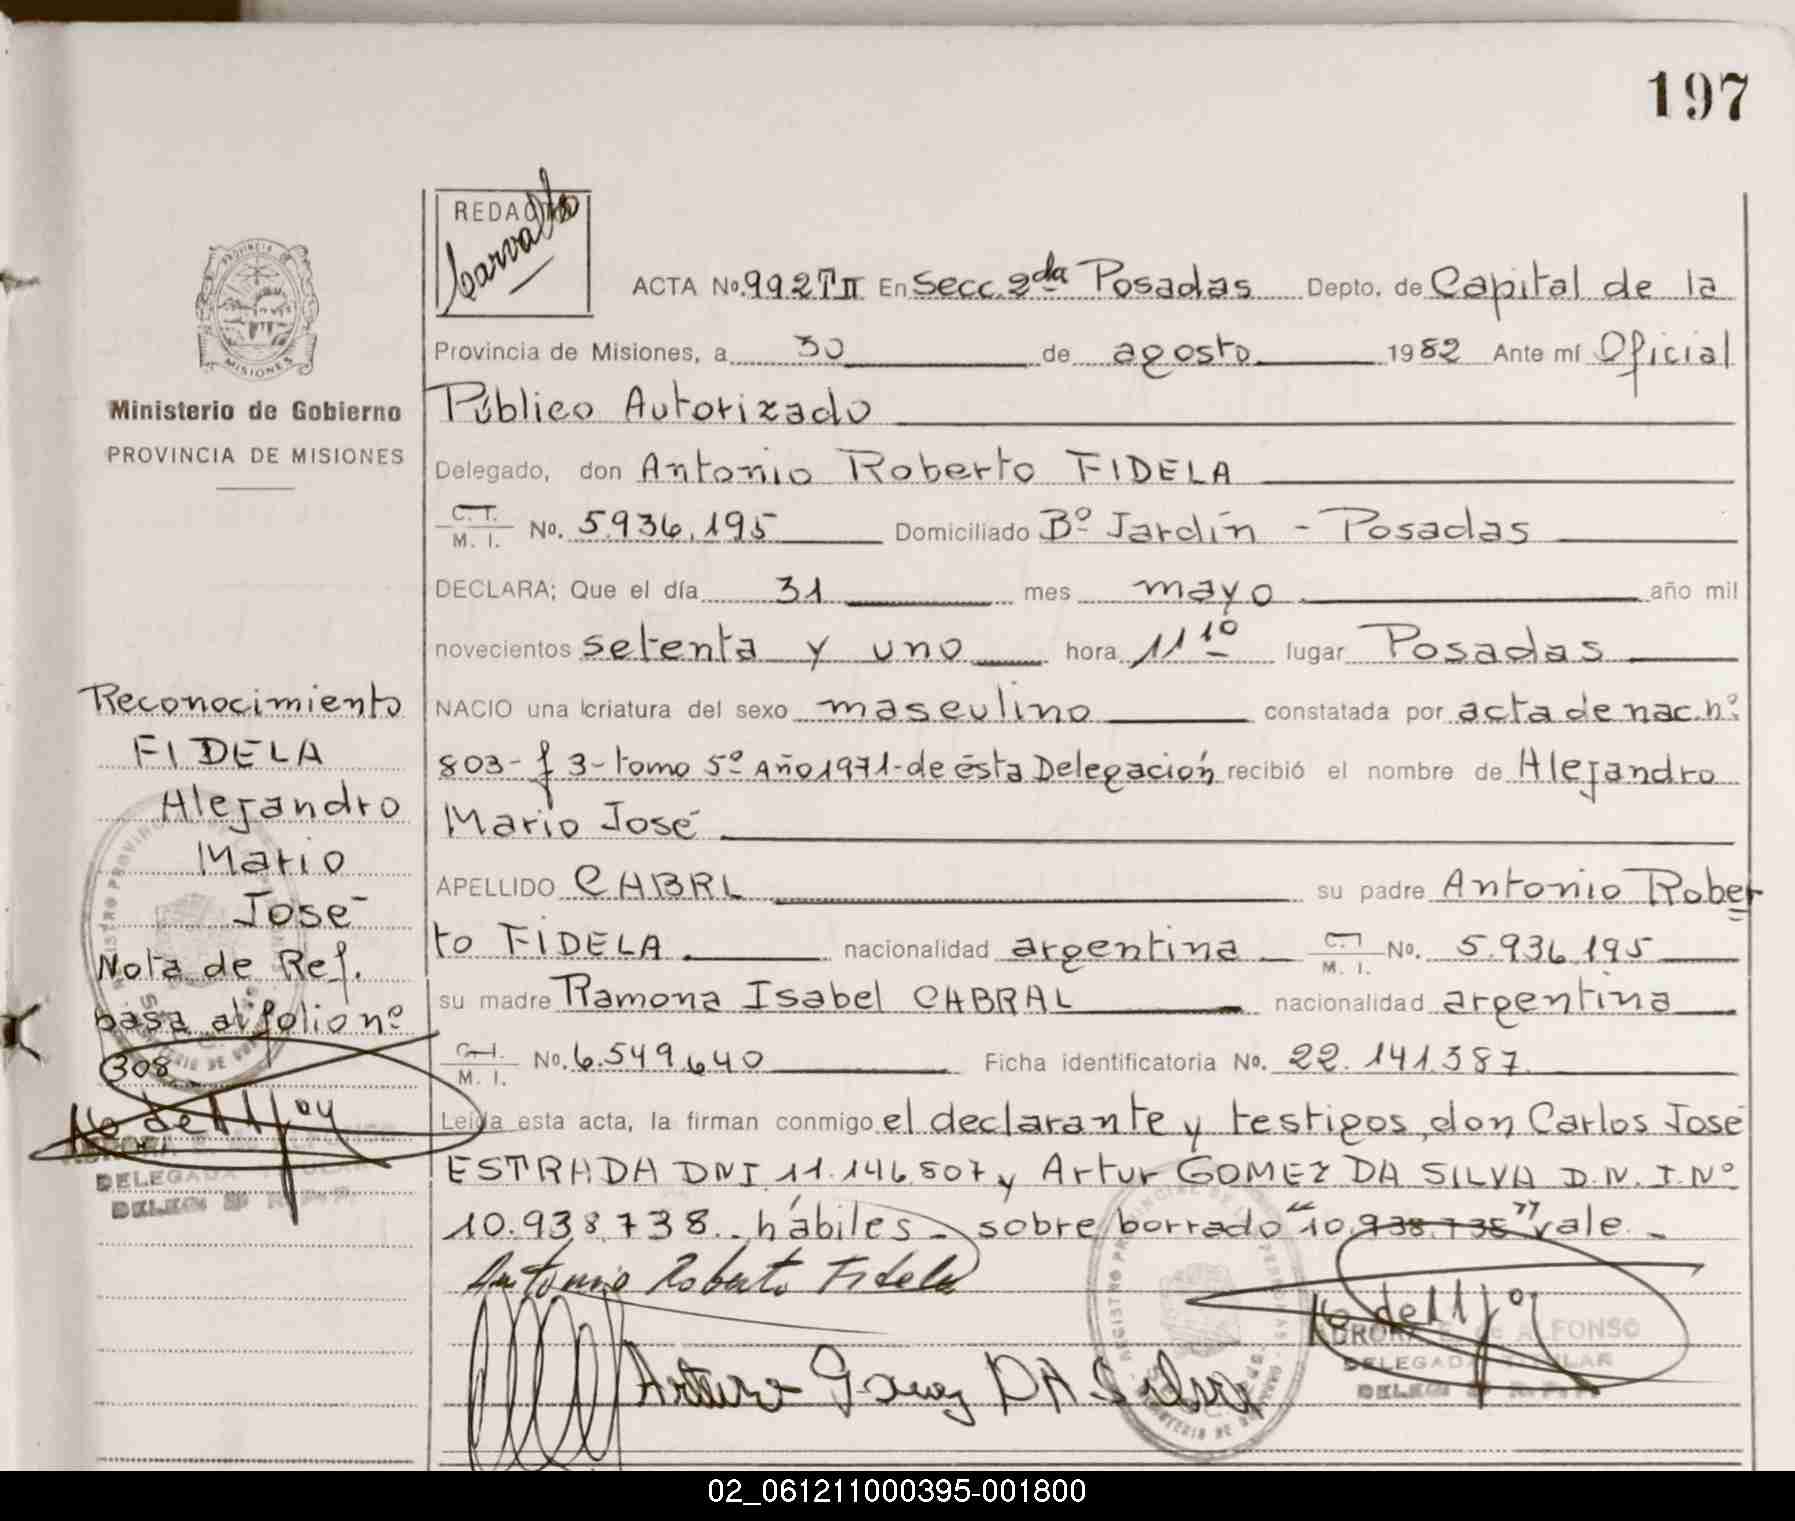 197
REDACTO
Carvalho
ACTA No. 992 T II En Secc. 2da Posadas Depto. de Capital de la
Provincia de Misiones, a 30 de agosto 1982 Ante mí Oficial
Público Autorizado
Delegado, don Antonio Roberto FIDELA
C.I. M. I. No. 5.936.195 Domiciliado Bº Jardín - Posadas
DECLARA; Que el día 31 mes mayo año mil
novecientos setenta y uno hora 11 10 lugar Posadas
NACIO una criatura del sexo masculino constatada por acta de nac. nº
803 - f 3 - tomo 5º Año 1971 - de ésta Delegación recibió el nombre de Alejandro
Mario José
APELLIDO CABRL su padre Antonio Rober
to FIDELA nacionalidad argentina C.I. M. I. No. 5.936.195
su madre Ramona Isabel CABRAL nacionalidad argentina
C.I. M. I. No. 6.549.640 Ficha identificatoria No. 22.141.387
Leída esta acta, la firman conmigo el declarante y testigos, don Carlos José
ESTRADA DNI 11.146.807 y Artur GOMEZ DA SILVA D.N.I. Nº
10.938.738 . hábiles - sobre borrado "10.938.738" vale -
Antonio Roberto Fidela
Arturo Gomez DA Silva
AURORA E. de ALFONSO
DELEGADA TITULAR
MISIONES
Ministerio de Gobierno
PROVINCIA DE MISIONES
Reconocimiento
FIDELA
Alejandro
Mario
José
Nota de Ref.
pasa al folio nº
308
DELEGADA TITULAR
02_061211000395-001800